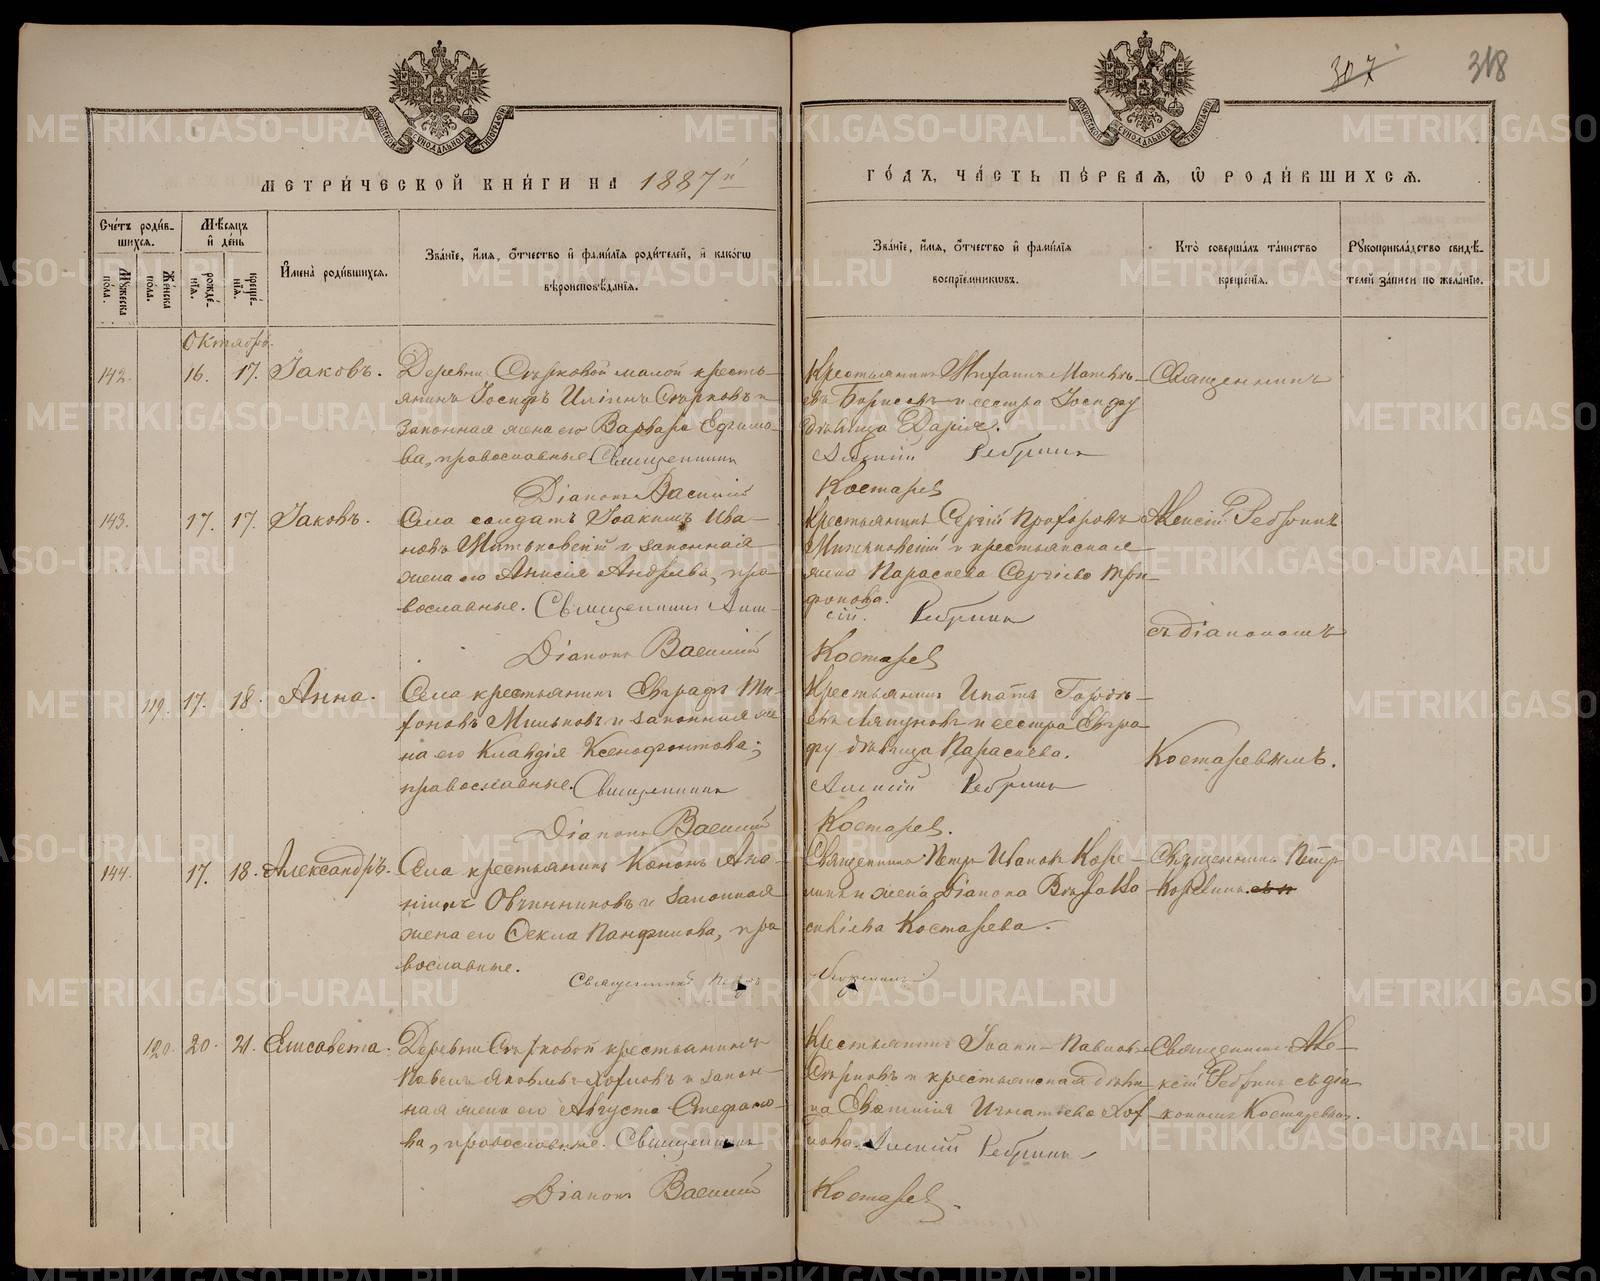 307
318
МОСКОВСКОЙ СѴНОДАЛЬНОЙ ТИПОГРАФІИ
МОСКОВСКОЙ СѴНОДАЛЬНОЙ ТИПОГРАФІИ
МЕТРИ́ЧЕСКОЙ КНИ́ГИ НА 1887й
ГО́ДЪ, ЧА́СТЬ ПЕ́РВАЯ, Ѡ РОДИ́ВШИХСЯ.
Сче́тъ роди́в-
шихся.
Мꙋжеска по́ла.
Же́нска по́ла.
Мѣ́сяцъ
и҆ де́нь
рожде́-
нїя.
креще́-
нїя.
И҆мена̀ роди́вшихся.
Зва́нїе, и҆́мя, ѻ҆́тчество и҆ фами́лїя роди́телей, и҆ како́гѡ
вѣроисповѣ́данїя.
Зва́нїе, и҆́мя, ѻ҆́тчество и҆ фами́лїя
воспрїе́мникѡвъ.
Кто̀ соверша́лъ та́инство
креще́нїя.
Рꙋкоприкла́дство свидѣ́-
телей за́писи по жела́нїю.
Октябрь.
142.
16.
17.
Іаковъ.
Деревни Сѣрковой малой кресть-
янинъ Іосифъ Илiинъ Сѣрковъ и
законная жена его Варвара Ефимо-
ва, православные. Священникъ
Діаконъ Василій
Крестьянинъ Михаилъ Матвѣ-
евъ Борисовъ и сестра Іосифу
дѣвица Дарія.
Алексій Ребринъ
Костарев
Священникъ
143.
17.
17.
Іаковъ.
Села солдатъ Іоакимъ Ива-
новъ Митьковскій и законная
жена его Анисія Андреева, пра-
вославные. Священникъ Алек-
Діаконъ Василій
Крестьянинъ Сергій Прохоровъ
Митьковскій и крестьянская
жена Параскева Сергіева Три-
фонова.
сій. Ребринъ
Костарев
Алексій Ребринъ
съ діакономъ
119.
17.
18.
Анна.
Села крестьянинъ Евграфъ Ти-
фоновъ Мильковъ и законная же
на его Клавдія Ксенофонтова;
православные. Священникъ
Діаконъ Василій
Крестьянинъ Ипатъ Гордѣ-
евъ Ляпуновъ и сестра Евгра-
фу дѣвица Параскева.
Алексій Ребринъ
Костарев.
Костаревымъ.
144.
17.
18.
Александръ.
Села крестьянинъ Кононъ Ана-
ніинъ Овчинниковъ и законная
жена его Ѳекла Панфилова, пра
вославные.
Священникъ Петръ
Священникъ Петръ Ивановъ Коре-
линъ и жена Діакона
Костарева.
Корелинъ
Священникъ Петръ
Корелинъ
120.
20.
21.
Елисавета.
Деревни Сѣрковой крестьянинъ
Павелъ Яковлевъ и закон-
ная жена его Августа Стефано-
ва, православные. Священникъ
Діаконъ Василій
Крестьянинъ Іоаннъ Павловъ
Сѣрковъ и крестьянская дѣви
ца Игнатьева
Алексій Ребринъ
Костарев.
Священникъ Але-
ксій Ребринъ съ діа
кономъ Костаревым.